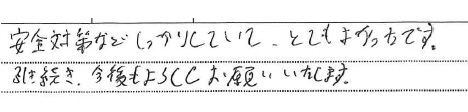 安全対策などしっかりしていて、とてもよかったです。
引き続き、今後もよろしくお願いいたします。